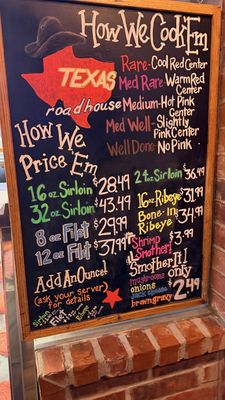 How We Cook 'Em
Rare-Cool Red Center
Med Rare-Warm Red Center
Medium-Hot Pink Center
Med Well-Slightly Pink Center
Well Done-No Pink
TEXAS
roadhouse
How We
Price 'Em
16oz Sirloin $28.49
32oz Sirloin $43.49
8oz Filet $29.99
12oz Filet $37.99
Add An Ounce!
(ask your server
for details)
Sirloin
Filet
24oz Sirloin $36.99
16oz Ribeye $31.99
Bone-In
Ribeye $34.99
Shrimp
Smother! $3.99
Smother It!
mushrooms
onions
jack cheese
brown gravy
only
$2.49